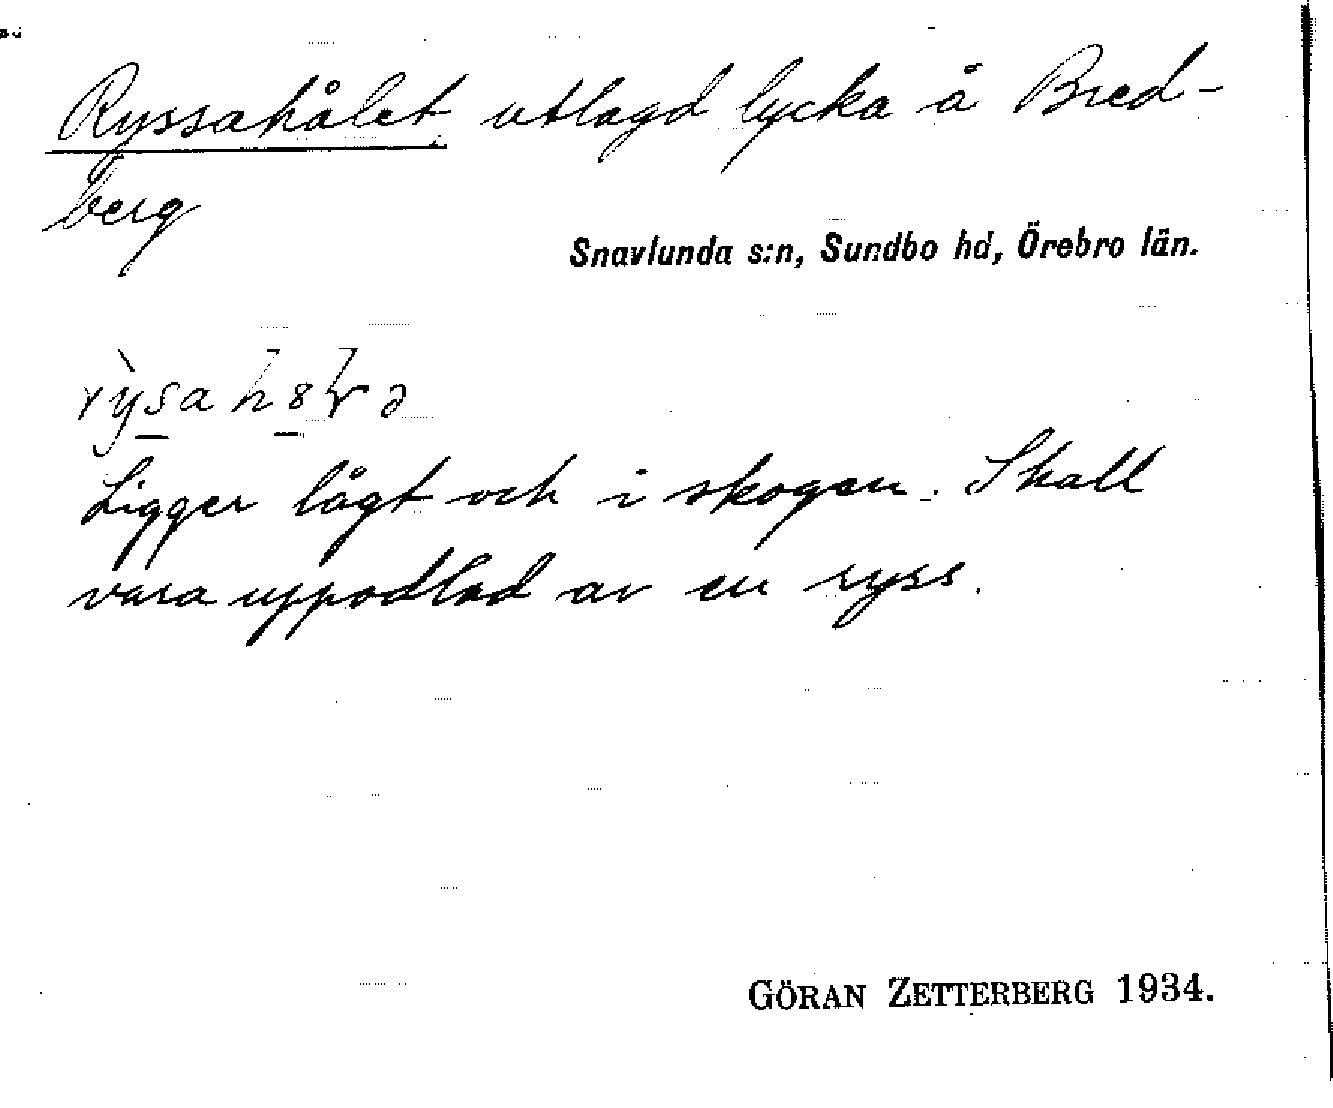 Ryssahålet utlagd lycka å Bred-
berg
Snavlunda s:n, Sundbo hd, Örebro län.
Ligger lågt och i skogen. Skall
vara uppodlad av en ryss.
GÖRAN ZETTERBERG 1934.